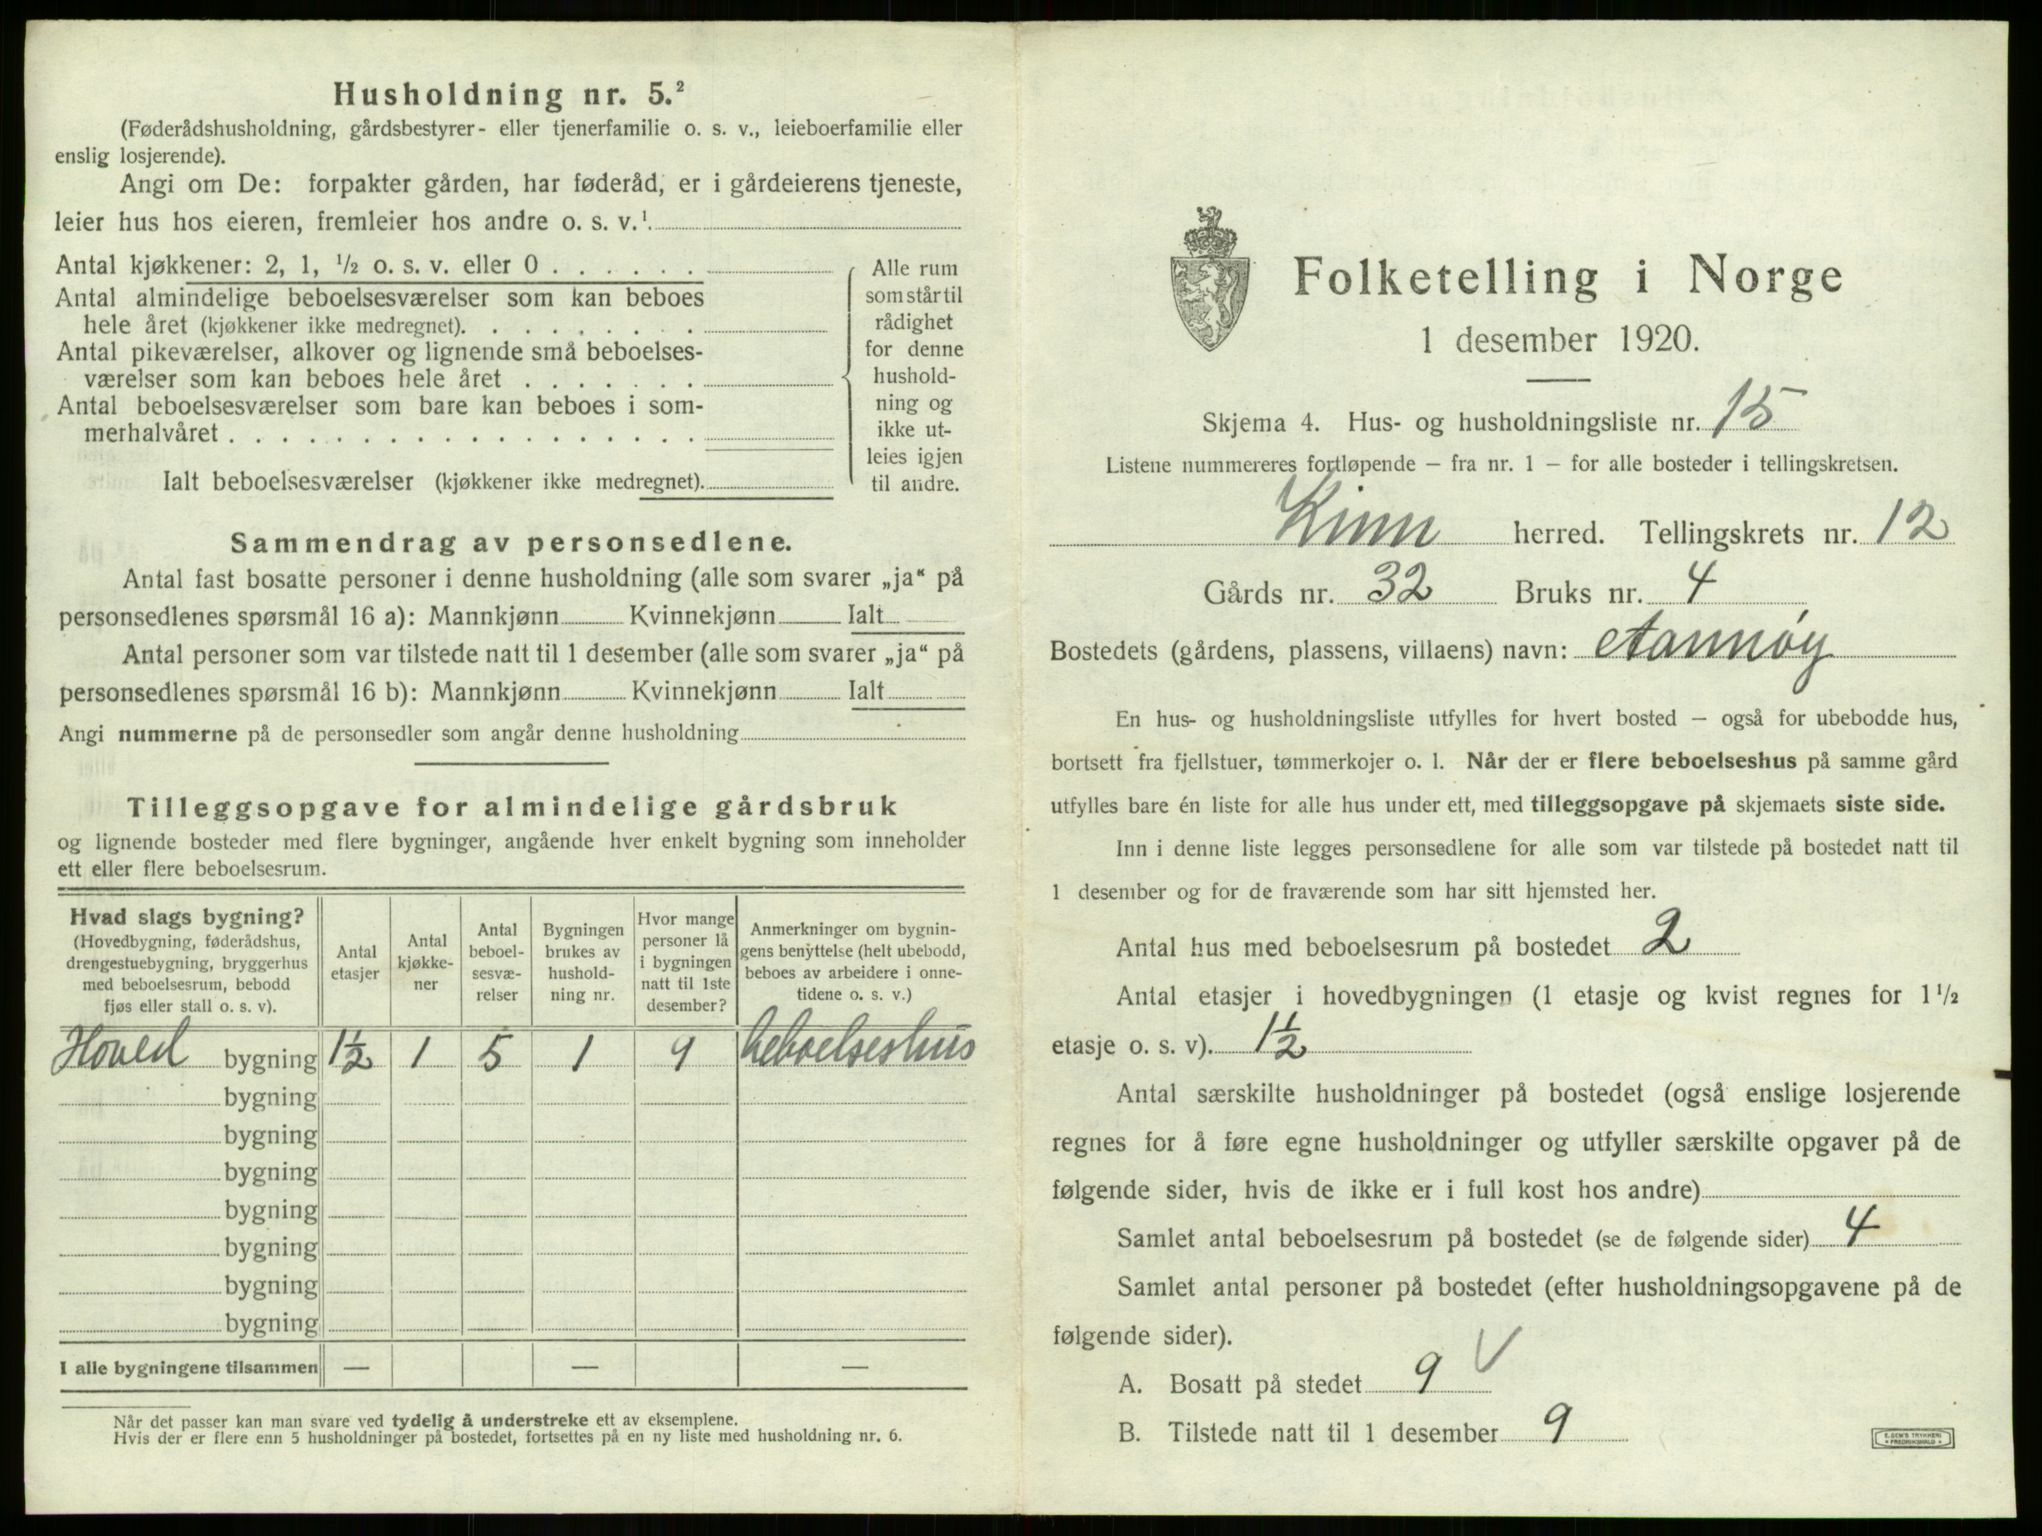 Husholdning nr. 5.²
(Føderådshusholdning, gårdsbestyrer- eller tjenerfamilie o. s. v., leieboerfamilie eller
enslig losjerende).
Angi om De: forpakter gården, har føderåd, er i gårdeierens tjeneste,
leier hus hos eieren, fremleier hos andre o. s. v.¹
Antal kjøkkener: 2, 1, ½ o. s. v. eller 0 . . . . . .
Antal almindelige beboelsesværelser som kan beboes
hele året (kjøkkener ikke medregnet). . . . . . . . .
Antal pikeværelser, alkover og lignende små beboelses-
værelser som kan beboes hele året . . . . . . .
Antal beboelsesværelser som bare kan beboes i som-
merhalvåret . . . . . . . . . . . . . . . . . .
Ialt beboelsesværelser (kjøkkener ikke medregnet).
Alle rum
som står til
rådighet
for denne
hushold-
ning og
ikke ut-
leies igjen
til andre.
Sammendrag av personsedlene.
Antal fast bosatte personer i denne husholdning (alle som svarer „ja“ på
personsedlenes spørsmål 16 a): Mannkjønn Kvinnekjønn Ialt
Antal personer som var tilstede natt til 1 desember (alle som svarer „ja“ på
personsedlenes spørsmål 16 b): Mannkjønn Kvinnekjønn Ialt
Angi nummerne på de personsedler som angår denne husholdning
Tilleggsopgave for almindelige gårdsbruk
og lignende bosteder med flere bygninger, angående hver enkelt bygning som inneholder
ett eller flere beboelsesrum.
Hvad slags bygning?
(Hovedbygning, føderådshus,
drengestuebygning, bryggerhus
med beboelsesrum, bebodd
fjøs eller stall o. s. v).
Antal
etasjer
Antal
kjøkke-
ner
Antal
beboel-
sesvæ-
relser
Bygningen
brukes av
hushold-
ning nr.
Hvor mange
personer lå
i bygningen
natt til 1ste
desember?
Anmerkninger om bygnin-
gens benyttelse (helt ubebodd,
beboes av arbeidere i onne-
tidene o. s. v.)
Hoved bygning 1½ 1 5 1 9 beboelseshus
bygning
bygning
bygning
bygning
bygning
bygning
bygning
I alle bygningene tilsammen — — —
Når det passer kan man svare ved tydelig å understreke ett av eksemplene.
Hvis der er flere enn 5 husholdninger på bostedet, fortsettes på en ny liste med husholdning nr. 6.
Folketelling i Norge
1 desember 1920.
Skjema 4. Hus- og husholdningsliste nr. 15
Listene nummereres fortløpende – fra nr. 1 – for alle bosteder i tellingskretsen.
Kinn herred. Tellingskrets nr. 12
Gårds nr. 32 Bruks nr. 4
Bostedets (gårdens, plassens, villaens) navn: Aannøy
En hus- og husholdningsliste utfylles for hvert bosted – også for ubebodde hus,
bortsett fra fjellstuer, tømmerkojer o. l. Når der er flere beboelseshus på samme gård
utfylles bare én liste for alle hus under ett, med tilleggsopgave på skjemaets siste side.
Inn i denne liste legges personsedlene for alle som var tilstede på bostedet natt til
1 desember og for de fraværende som har sitt hjemsted her.
Antal hus med beboelsesrum på bostedet 2
Antal etasjer i hovedbygningen (1 etasje og kvist regnes for 1½
etasje o. s. v). 1½
Antal særskilte husholdninger på bostedet (også enslige losjerende
regnes for å føre egne husholdninger og utfyller særskilte opgaver på de
følgende sider, hvis de ikke er i full kost hos andre)
Samlet antal beboelsesrum på bostedet (se de følgende sider) 4
Samlet antal personer på bostedet (efter husholdningsopgavene på de
følgende sider).
A. Bosatt på stedet 9 V
B. Tilstede natt til 1 desember 9